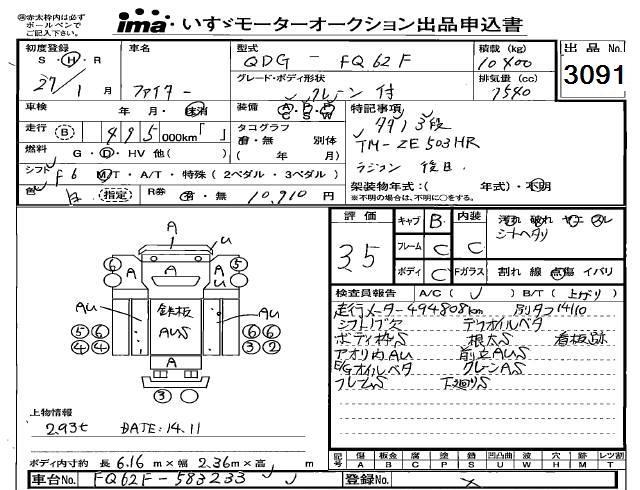 ㊟赤太枠内は必ず
ボールペンで
ご記入下さい。
ima・いすゞモーターオークション出品申込書
初度登録
S・H・R
27/1月
車名
ファイター
型式
QDG-FQ62F
グレード・ボディ形状
クレーン付
積載(kg)
10400
排気量(cc)
7540
出品No.
3091
車検 年・月・抹消
装備 AC・PS・PW
特記事項
タダノ3段
TM-ZE503HR
ラジコン 後日
走行 B 495 000km「 」
タコグラフ
有・無 別体
( 年 月)
燃料 G・D・HV 他( )
シフト F6 M/T・A/T・特殊(2ペダル・3ペダル)
架装物年式:( 年式)・不明
※不明の場合は、不明に○をする。
色 白 指定
R券 有・無 10,910円
評価
3.5
キャブ B
内装 C
汚れ 破れ ヤニ スレ
シートヘタリ
フレーム C
ボディ C
Fガラス 割れ 線 点傷 イバリ
検査員報告 A/C( ) B/T(上がり)
走行メーター494808km 別タコ14110
シフトノブ欠 デフオイルベタ
ボディ枠S 根太S 看板跡
アオリ内AU 前立AUS
E/Gオイルベタ クレーンAS
フレームS 下廻りS
A
U
A
A
A
⑥
⑤
AU
鉄板
AUS
AU
⑤⑥
④④
⑥⑥
③②
A
③
上物情報
2.93t DATE:14.11
ボディ内寸約 長6.16m×幅2.36m×高 m
記号 傷 板金 腐 塗 錆 凹凸曲 波 穴 跡 飛石 レツ割
A B C P S U W H X M T
車台No. FQ62F-583233
登録No. ×